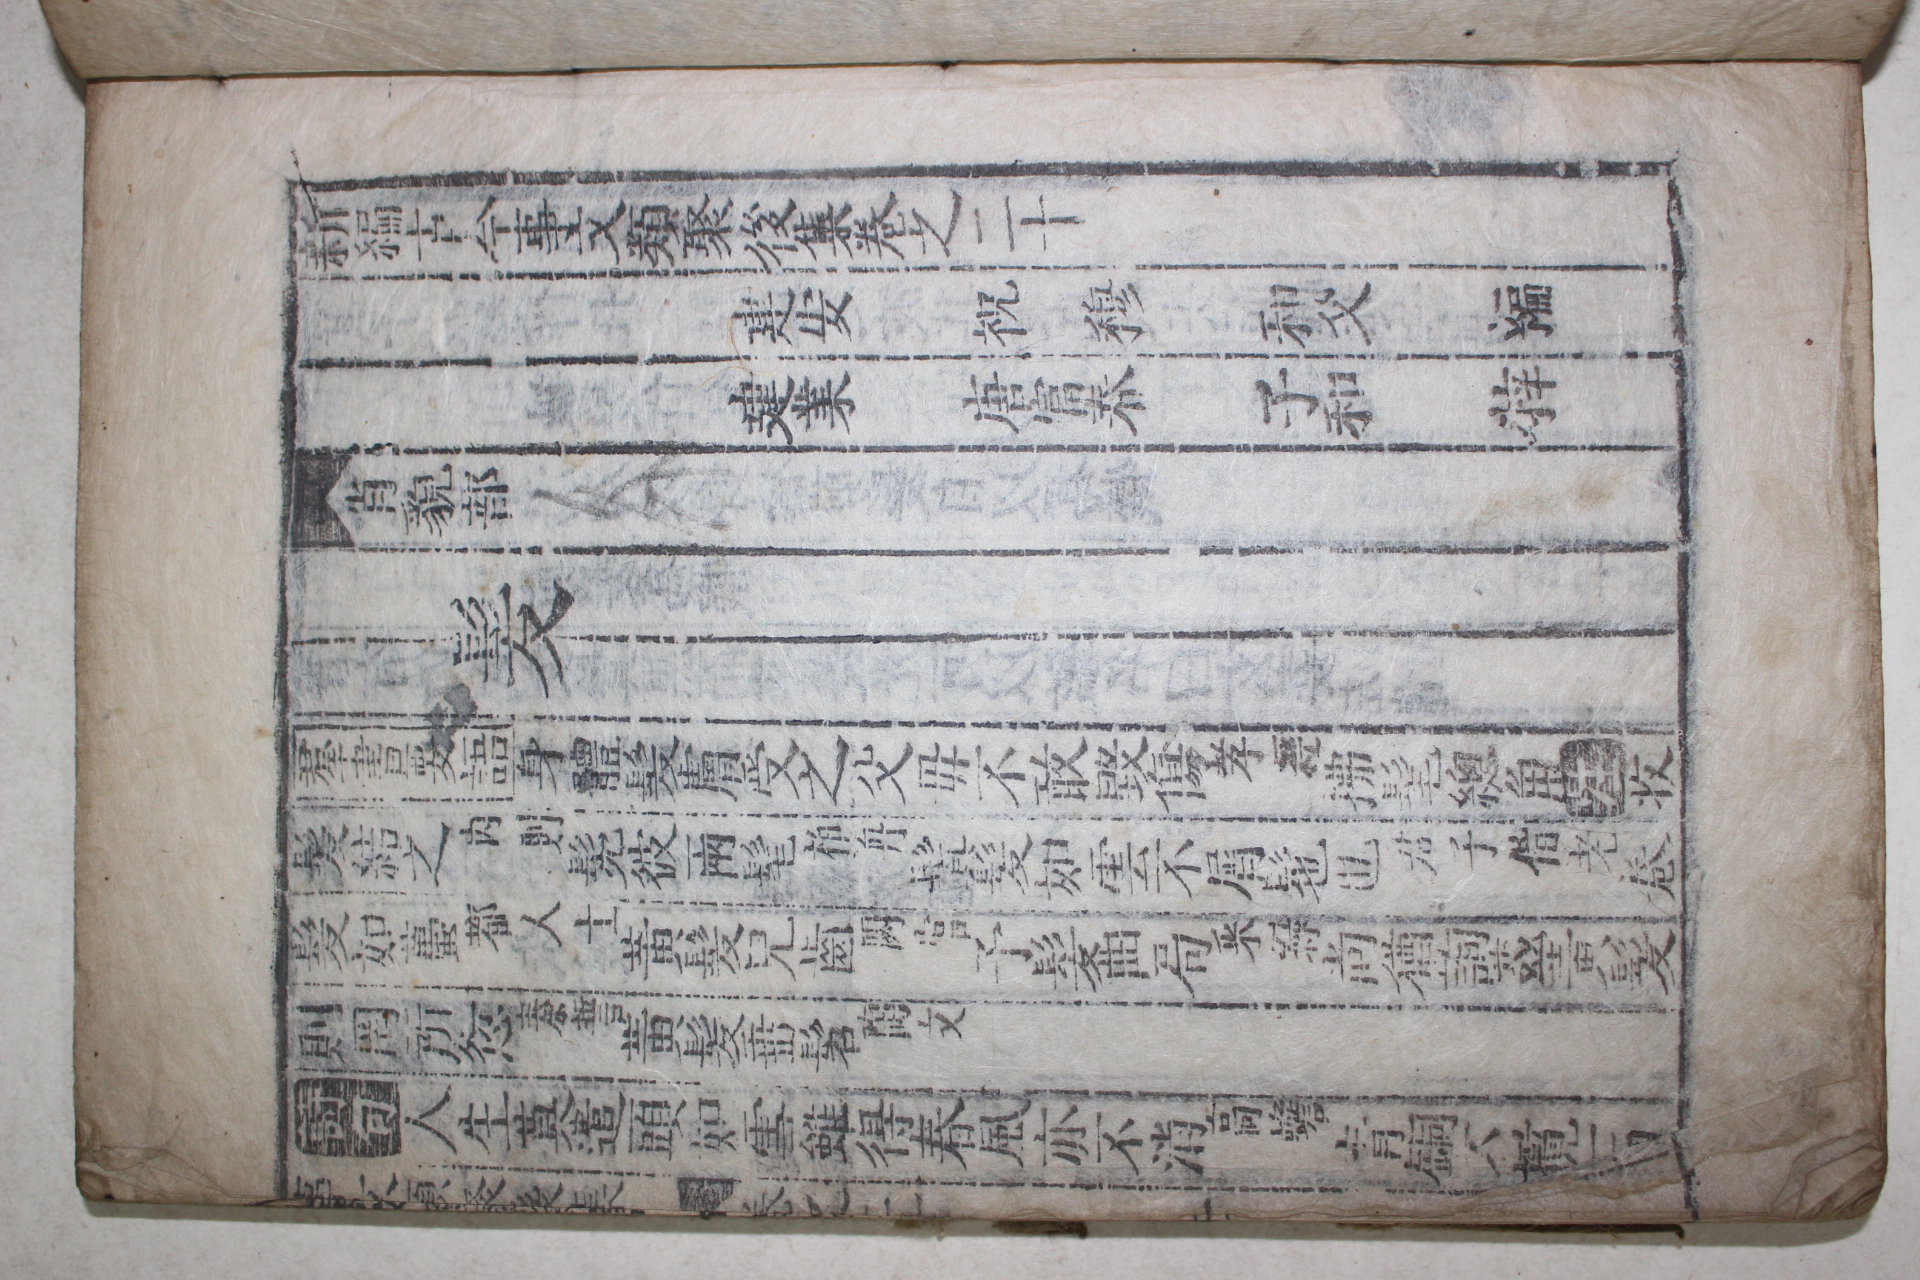 新編古今事文類聚後集卷之二十
建安 祝 穆 和父 編
建業 唐富春 子和 梓
肖貌部
髮
羣書要語 身體髮膚受之父毋不敢毀傷孝經拂髦總角注收
髮結之內則髧彼兩髦栢舟鬒髮如雲不屑髢也君子偕老卷
髮如蠆都人士黃髮兒齒閟宮予髮曲局采綠尚猶詢茲黃髮
則罔所愆秦誓黃髮垂髫陶文
詩句 人生莫遣頭如雪雖得春風亦不消高蟾青銅不
事文類聚後集 卷之二十 一